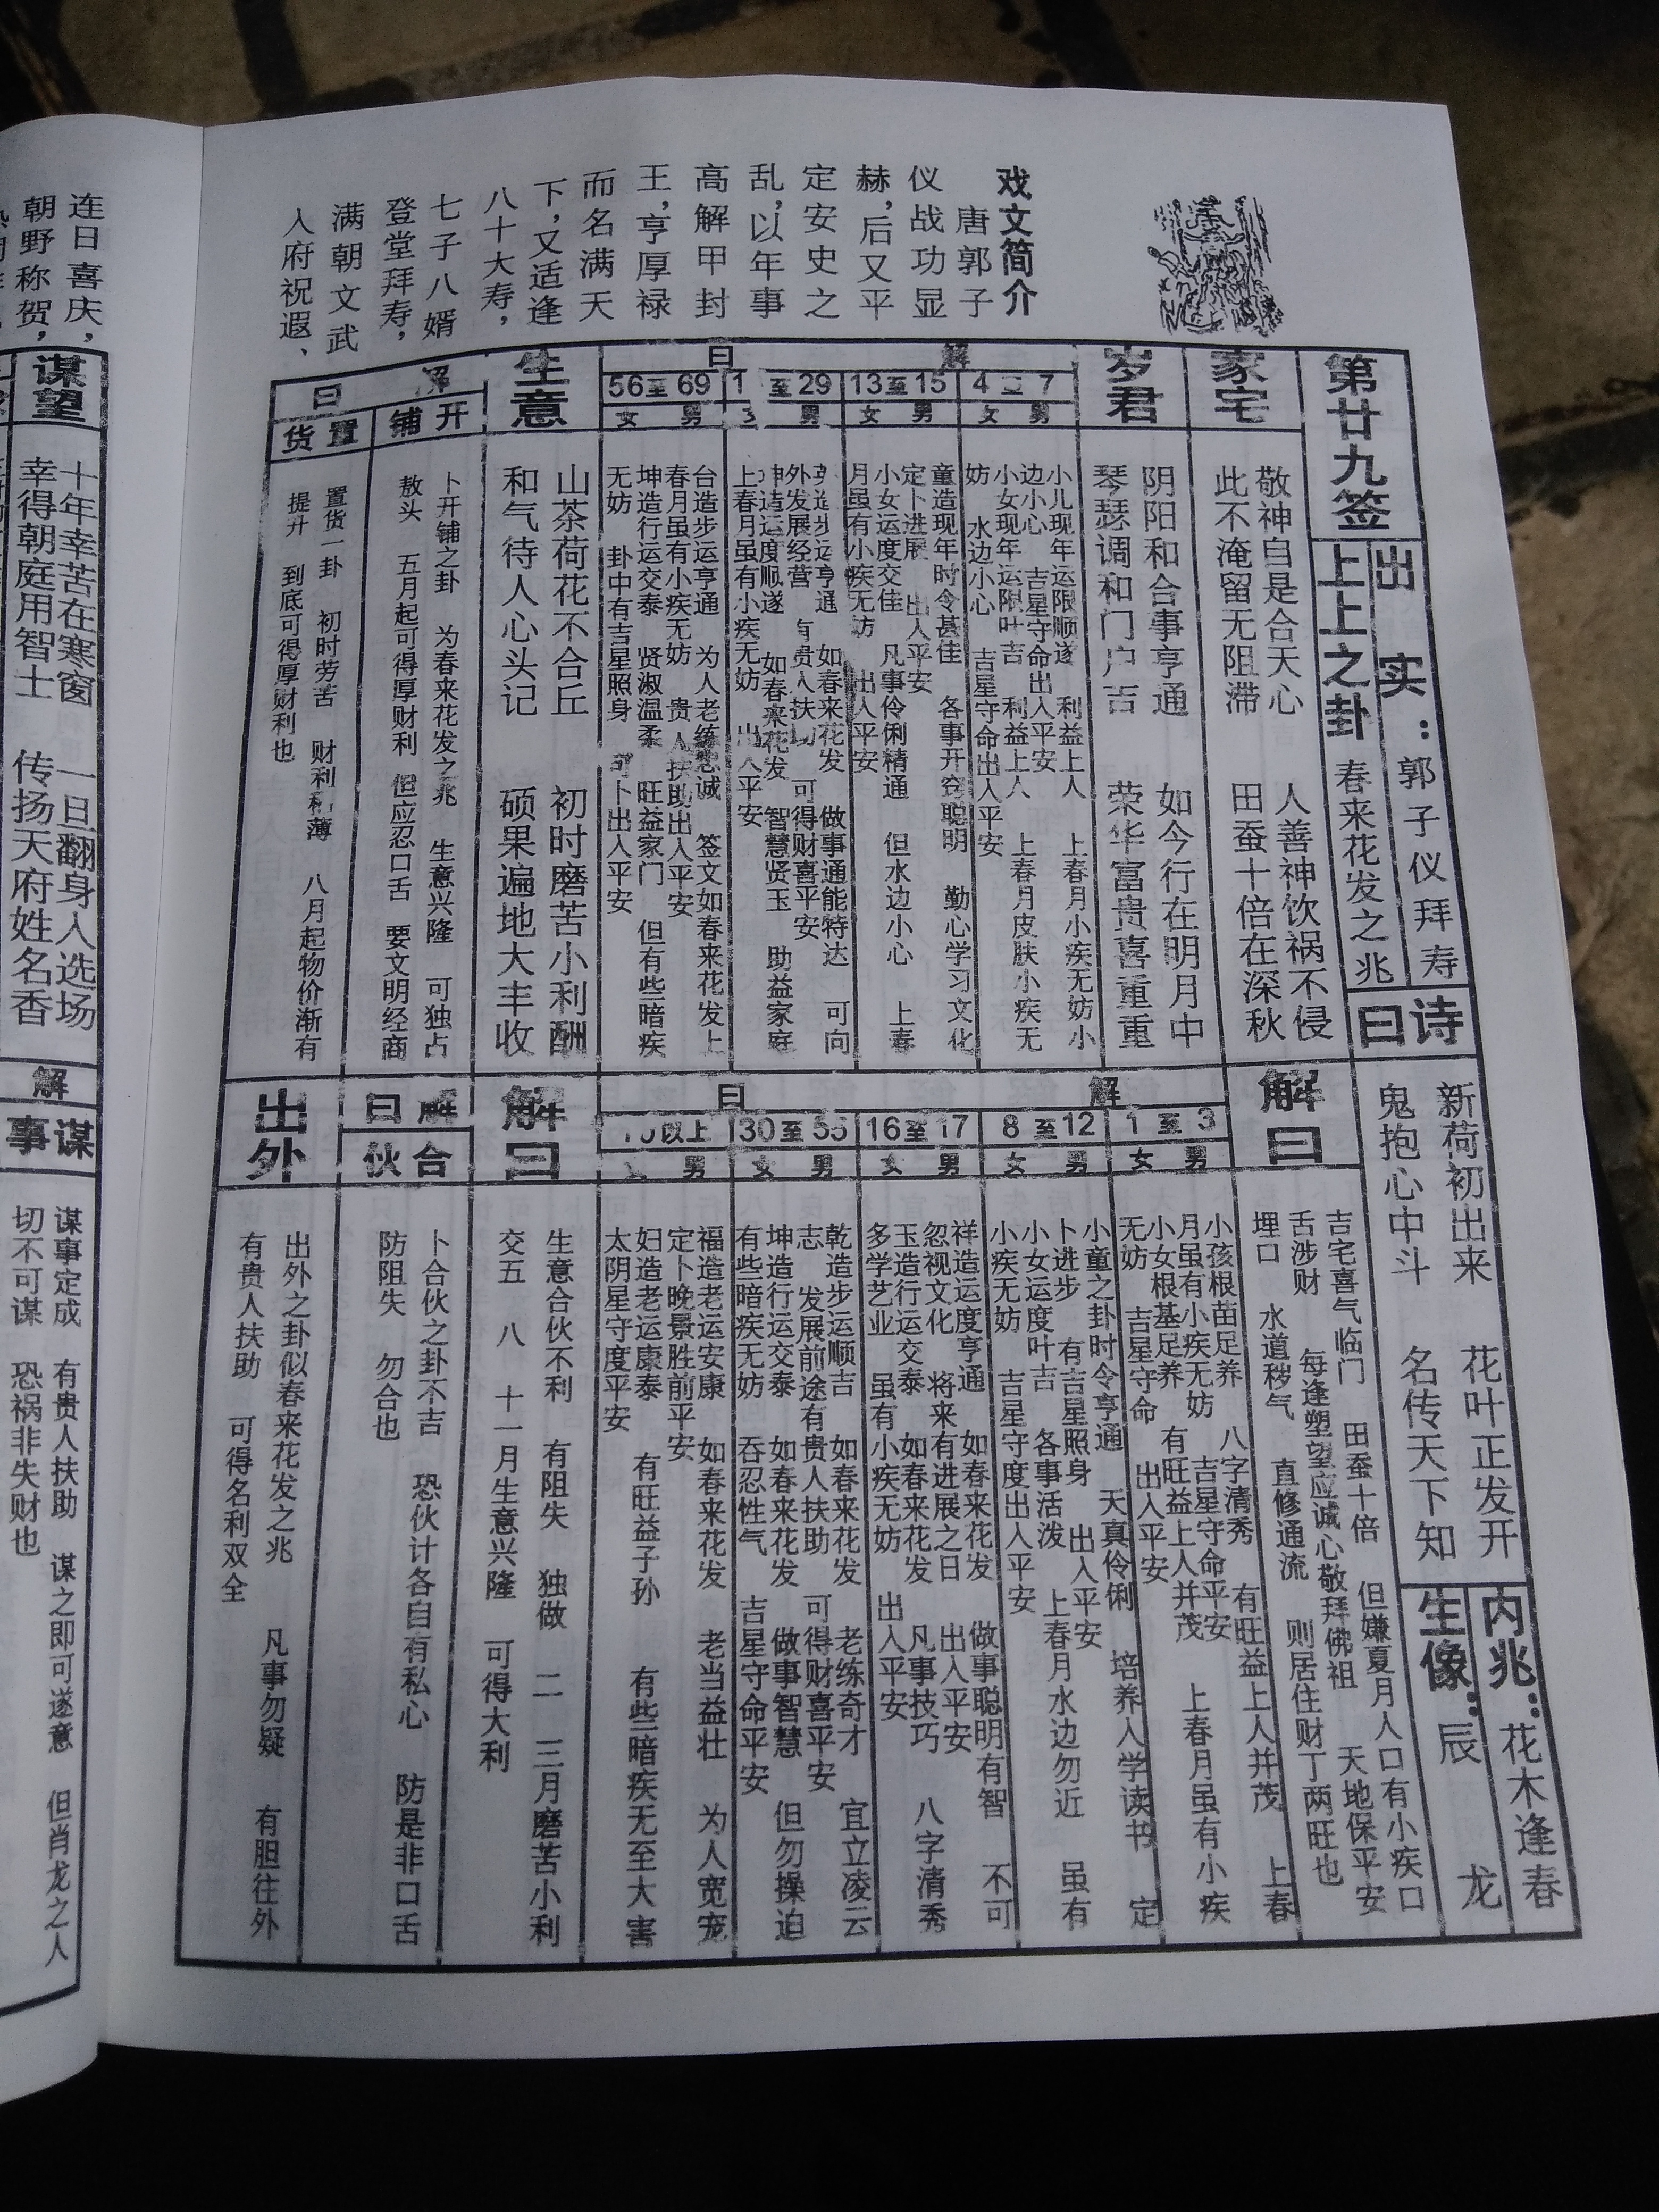 戏文简介
唐郭子
仪战功显
赫,后又平
定安史之
乱,以年事
高解甲封
王,亨厚禄
而名满天
下,又适逢
八十大寿,
七子八婿
登堂拜寿,
满朝文武
入府祝遐、
第廿九签
出实:郭子仪拜寿
上上之卦 春来花发之兆
诗曰
新荷初出来 花叶正发开
鬼抱心中斗 名传天下知
内兆:花木逢春
生像:辰 龙
家宅
敬神自是合天心 人善神饮祸不侵
此不淹留无阻滞 田蚕十倍在深秋
解曰
吉宅喜气临门 田蚕十倍 但嫌夏月人口有小疾口
舌涉财 每逢塑望应诚心敬拜佛祖 天地保平安
埋口 水道秽气 直修通流 则居住财丁两旺也
岁君
阴阳和合事亨通 如今行在明月中
琴瑟调和门户吉 荣华富贵喜重重
解曰
1至3
男
女
小孩根苗足养 八字清秀 有旺益上人并茂 上春
月虽有小疾无妨 吉星守命平安
小女根基足养 有旺益上人并茂 上春月虽有小疾
无妨 吉星守命 出入平安
4至7
男
女
小儿现年运限顺遂 利益上人 上春月小疾无妨小
边小心 吉星守命出入平安
小女现年运限叶吉 利益上人 上春月皮肤小疾无
妨 水边小心 吉星守命出入平安
8至12
男
女
小童之卦时令亨通 天真伶俐 培养入学读书 定
卜进步 有吉星照身 出入平安
小女运度叶吉 各事活泼 上春月水边勿近 虽有
小疾无妨 吉星守度出入平安
13至15
男
女
童造现年时令甚佳 各事开窍聪明 勤心学习文化
定卜进展 出入平安
小女运度交佳 凡事伶俐精通 但水边小心 上春
月虽有小疾无妨 出入平安
16至17
男
女
祥造运度亨通 如春来花发 做事聪明有智 不可
忽视文化 将来有进展之日 出入平安
玉造行运交泰 如春来花发 凡事技巧 八字清秀
多学艺业 虽有小疾无妨 出入平安
1 至29
男
女
造步运亨通 如春来花发 做事通能特达 可向
外发展经营 有贵人扶 可得财喜平安
坤造运度顺遂 如春来花发 智慧贤玉 助益家庭
上春月虽有小疾无妨 出入平安
30至55
男
女
乾造步运顺吉 如春来花发 老练奇才 宜立凌云
志 发展前途有贵人扶助 可得财喜平安
坤造行运交泰 如春来花发 做事智慧 但勿操迫
有些暗疾无妨 吞忍性气 吉星守命平安
56至69
男
女
台造步运亨通 为人老练忠诚 签文如春来花发上
春月虽有小疾无妨 贵人扶助出入平安
坤造行运交泰 贤淑温柔 旺益家门 但有些暗疾
无妨 卦中有吉星照身 可卜出入平安
以上
男
福造老运安康 如春来花发 老当益壮 为人宽宠
定卜晚景胜前平安
妇造老运康泰 有旺益子孙 有些暗疾无至大害
太阴星守度平安
生意
山茶荷花不合丘 初时磨苦小利酬
和气待人心头记 硕果遍地大丰收
解曰
生意合伙不利 有阻失 独做 二 三月磨苦小利
交五 八 十一月生意兴隆 可得大利
解曰
开铺
卜开铺之卦 为春来花发之兆 生意兴隆 可独占
敖头 五月起可得厚财利 但应忍口舌 要文明经商
置货
置货一卦 初时芳苦 财利 薄 八月起物价渐有
提升 到底可得厚财利也
解曰
合伙
卜合伙之卦不吉 恐伙计各自有私心 防是非口舌
防阻失 勿合也
出外
出外之卦似春来花发之兆 凡事勿疑 有胆往外
有贵人扶助 可得名利双全
连日喜庆,
朝野称贺,
谋望
十年幸苦在寒窗 一日翻身入选场
幸得朝庭用智士 传扬天府姓名香
解
谋事
谋事定成 有贵人扶助 谋之即可遂意 但肖龙之人
切不可谋 恐祸非失财也